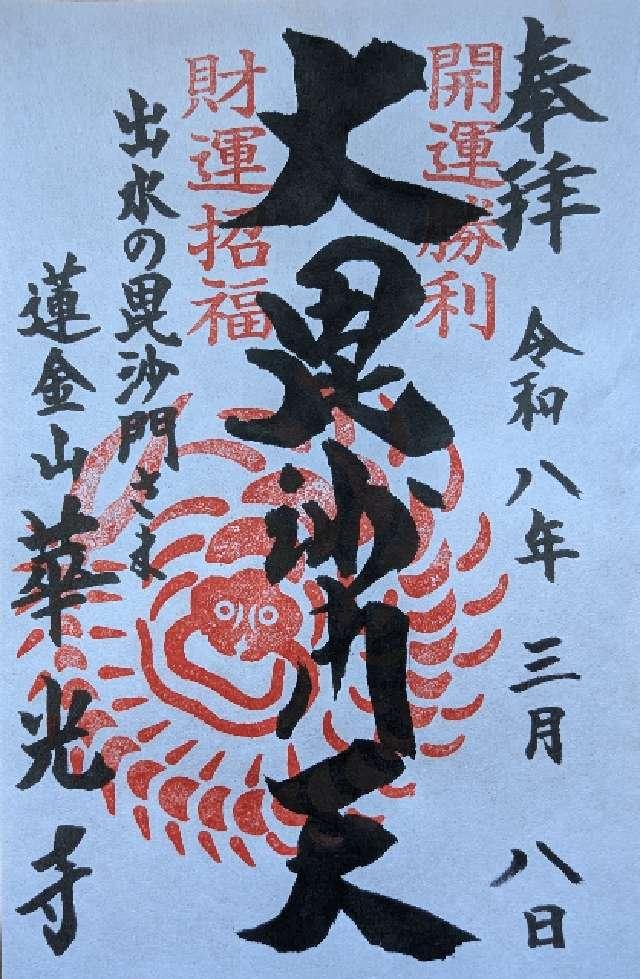 奉拝
令和八年三月八日
開運勝利
大毘沙門天
財運招福
出水の毘沙門さま
蓮金山華光寺